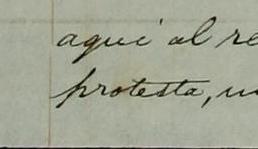 aqui al re
protesta, u